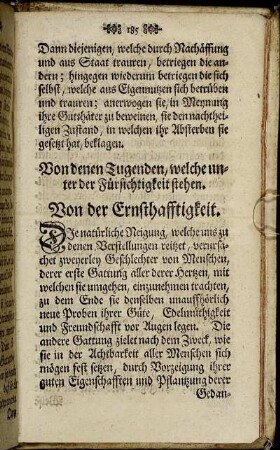 185
Dann diejenigen, welche durch Nachäffung
und aus Staat trauren, betriegen die an-
dern; hingegen wiederum betriegen die sich
selbst, welche aus Eigennutzen sich betrüben
und trauren; anerwogen sie, in Meynung
ihre Gutthäter zu beweinen, sie den nachthei-
ligen Zustand, in welchen ihr Absterben sie
gesetzt hat, beklagen.
Von denen Tugenden, welche un-
ter der Fürsichtigkeit stehen.
Von der Ernsthafftigkeit.
DIe natürliche Neigung, welche uns zu
denen Verstellungen reitzet, verursa-
chet zweyerley Geschlechter von Menschen,
derer erste Gattung aller derer Hertzen, mit
welchen sie umgehen, einzunehmen trachten,
zu dem Ende sie denselben unaufhörlich
neue Proben ihrer Güte, Edelmüthigkeit
und Freundschafft vor Augen legen. Die
andere Gattung zielet nach dem Zweck, wie
sie in der Achtbarkeit aller Menschen sich
mögen fest setzen, durch Vorzeigung ihrer
guten Eigenschafften und Pflantzung derer
Gedan-